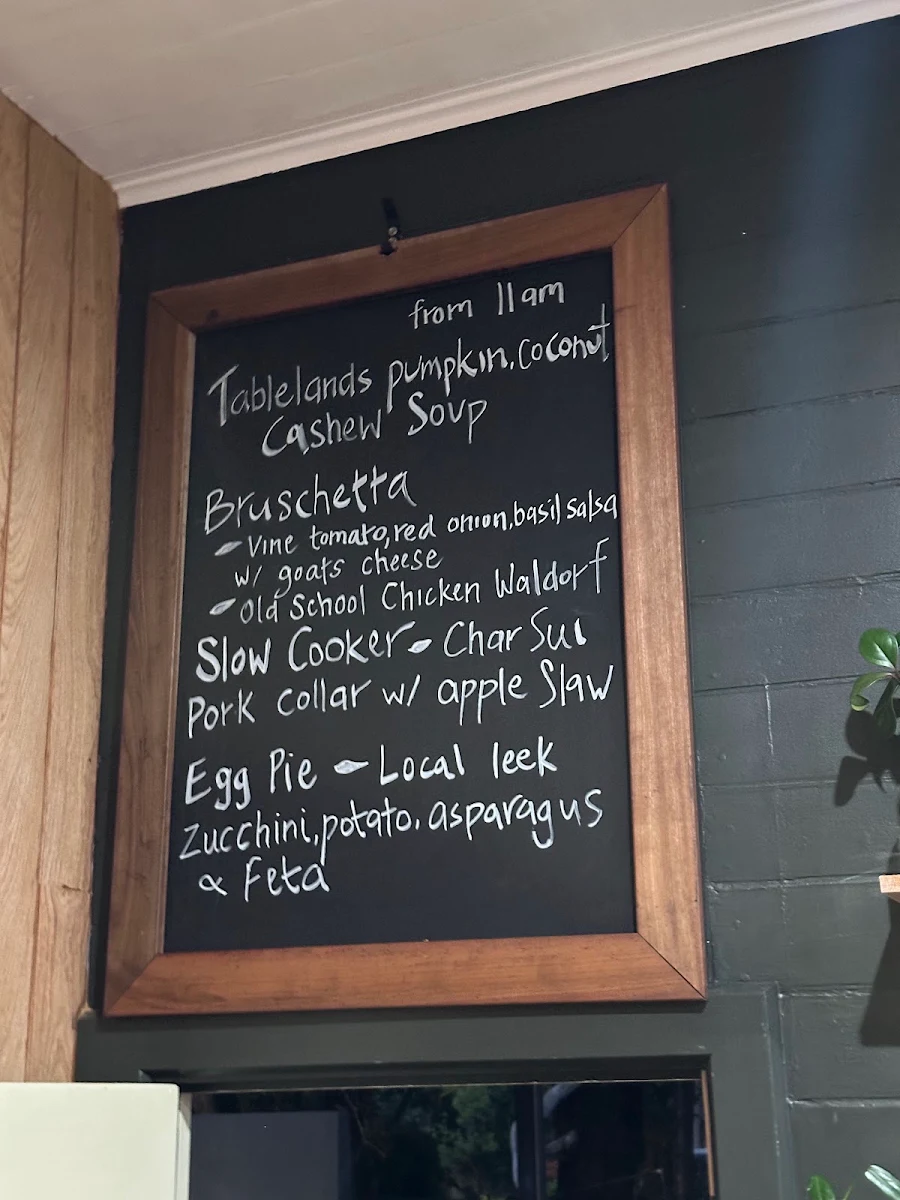 from 11am
Tablelands pumpkin, coconut
Cashew Soup
Bruschetta
- Vine tomato, red onion, basil salsa
w/ goats cheese
- Old School Chicken Waldorf
Slow Cooker - Char Sui
Pork collar w/ apple Slaw
Egg Pie - Local leek
Zucchini, potato, asparagus
& Feta